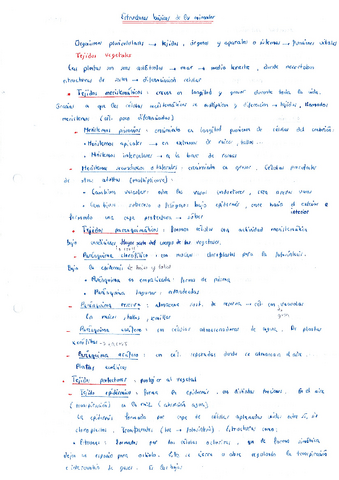 Estructuras básicas de los animales
Organismos pluricelulares → tejidos, órganos y aparatos o sistemas → funciones vitales
Tejidos vegetales
Las plantas en una → mar → medio terrestre, donde necesitaban
estructuras de → diferenciación celular
• Tejidos meristemáticos: crecen en longitud y grosor durante toda la vida.
Gracias a que las células meristemáticas se multiplican y diferencian → tejidos, llamados
meristemos (cél. poco diferenciadas)
• Meristemos primarios: crecimiento en longitud proviene de células del embrión:
• Meristemos apicales → en extremos de raíces, tallos...
• Meristemos intercalares → en la base de
– Meristemos secundarios o laterales: crecimiento en grosor. Células procedentes
de otras adultas
• Cambium vascular: entre los vasos conductores, crea nuevos vasos
• Cambium bajo epidermis, crece hacia el exterior e
interior
formando una capa protectora →
• Tejidos parenquimáticos: formados células con actividad
Bajo mayor parte del cuerpo de los vegetales.
– Parénquima clorofílico: con muchos cloroplastos para la fotosíntesis.
Bajo la epidermis de hojas y tallos
• Parénquima en empalizada: forma de
• Parénquima lagunar: redondeadas
– Parénquima reserva: almacena sust. de reserva → cél. con vacuolas
En raíces, tallos, semillas
– Parénquima acuífero: con células almacenadoras de agua. En plantas
xerófitas
– Parénquima aerífero: con cél. separadas donde se almacena el aire.
Plantas acuáticas
• Tejidos protectores: protegen al vegetal
– Tejido epidérmico: forma la epidermis con distintas funciones. En el aire
(transpiración) en la raíz (absorción agua)
La epidermis formada por capa de células aplanadas unidas entre sí, sin
cloroplastos. Transparentes (luz → fotosíntesis). Estructuras como:
• Estomas: formados por dos células oclusivas, que de forma simétrica
dejan un espacio para ostiolo. Este se cierra o abre regulando la transpiración
e intercambio de gases. En las hojas